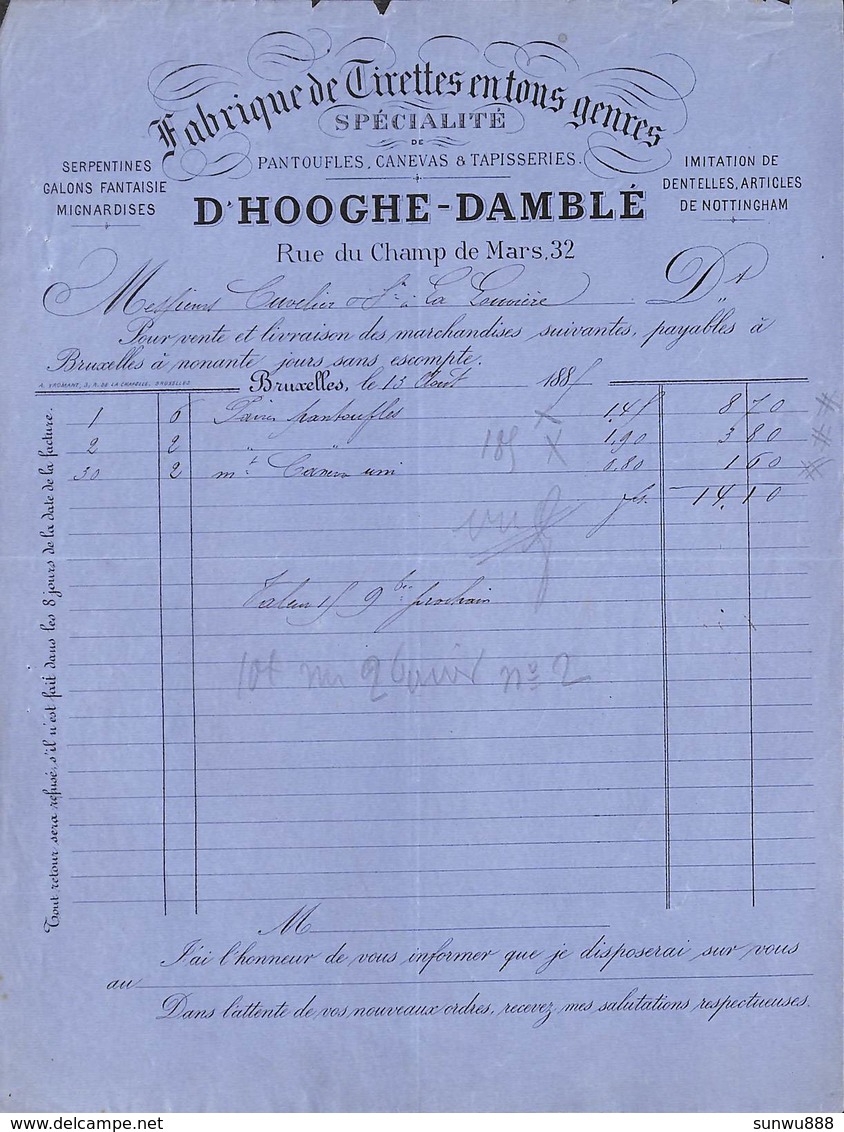 Fabrique de Tirettes en tous genres
SPÉCIALITÉ
DE
PANTOUFLES, CANEVAS & TAPISSERIES.
SERPENTINES
GALONS FANTAISIE
MIGNARDISES
IMITATION DE
DENTELLES, ARTICLES
DE NOTTINGHAM
D'HOOGHE-DAMBLÉ
Rue du Champ de Mars, 32
Messieurs Cuvelier & Sr à La Louvière Dt
Pour vente et livraison des marchandises suivantes, payables à
Bruxelles à nonante jours sans escompte.
A. FROMANT, 3, R. DE LA CHAPELLE. BRUXELLES
Bruxelles, le 13 Août 1885
1 6 Paires pantoufles 1.45 8 70
2 2 " " 1.90 3 80
185
30 2 mt Canevas uni 0.80 1 60
frs. 14.10
Valeur 15 9bre prochain
no 2
Tout retour sera refusé, s'il n'est fait dans les 8 jours de la date de la facture.
M
J'ai l'honneur de vous informer que je disposerai sur vous
au
Dans l'attente de vos nouveaux ordres, recevez mes salutations respectueuses.
sunwu888